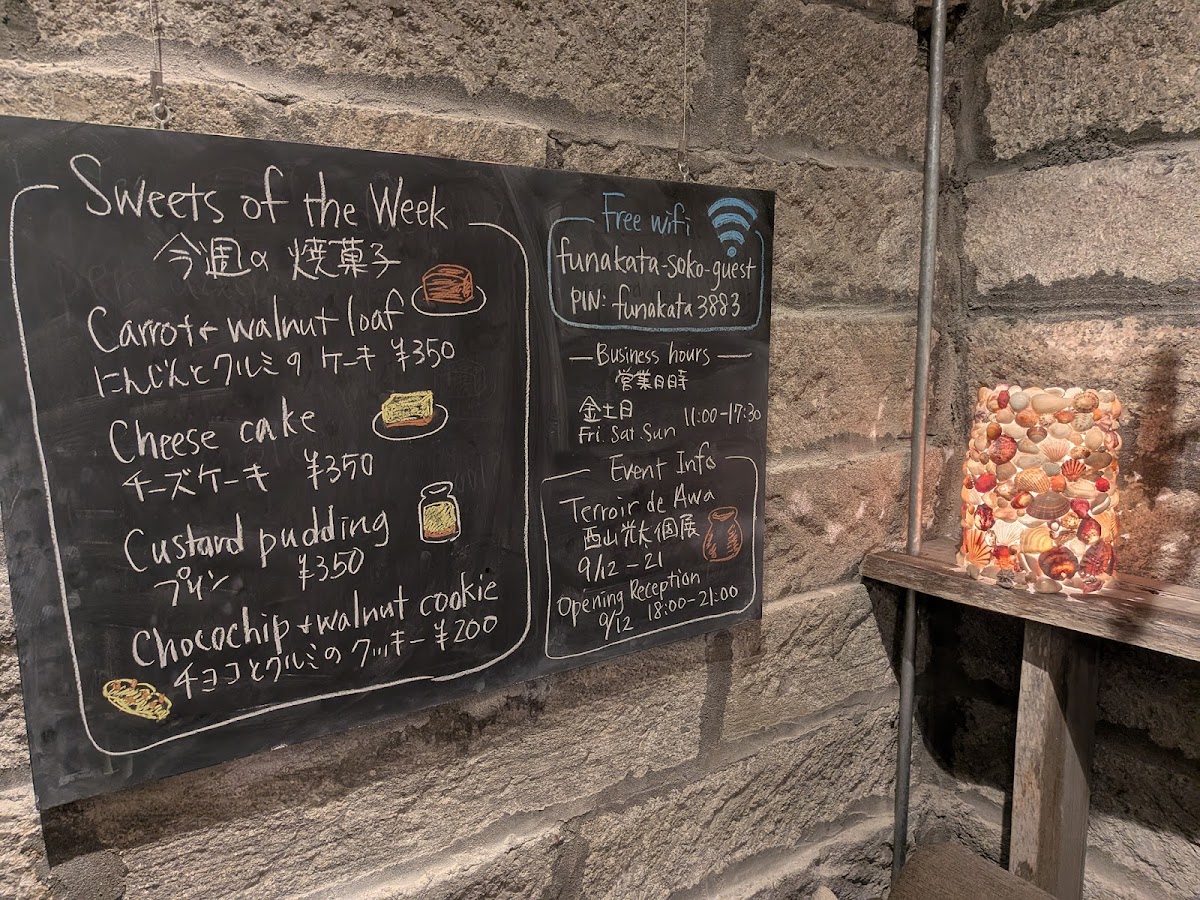 Sweets of the Week
今週の焼菓子
Carrot & walnut loaf
にんじんとクルミのケーキ ¥350
Cheese cake
チーズケーキ ¥350
Custard pudding
プリン ¥350
Chocochip & walnut cookie
チョコとクルミのクッキー ¥200
Free wifi
funakata-soko-guest
PIN: funakata3883
Business hours
営業日時
金土日
Fri. Sat. Sun 11:00-17:30
Event Info
Terroir de Awa
西山光太個展
9/12-21
Opening Reception
9/12 18:00-21:00